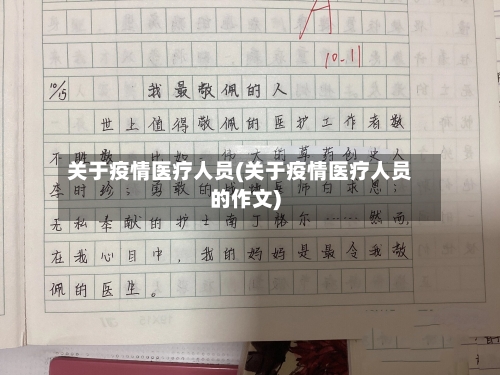 A
10.11
10/15
我最敬佩的人
世上值得敬佩的医护工作者数
不胜数。比如：伟大的草药创始人
关于疫情医疗人员(关于疫情医疗人员
的作文)
李时珍；勇敢的战地医师白求恩；
无私奉献的护士南丁格尔……然而，
在我心目中，我的妈妈是最令我敬
佩的医生。